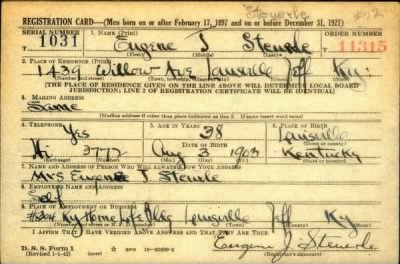 Steuerle
REGISTRATION CARD—(Men born on or after February 17, 1897 and on or before December 31, 1921)
SERIAL NUMBER 1. NAME (Print) ORDER NUMBER
1031 Eugene J Steuerle 11315
(First) (Middle) (Last)
2. PLACE OF RESIDENCE (Print)
1439 Willow Ave Louisville Jeff Ky.
(Number and street) (Town, township, village, or city) (County) (State)
[THE PLACE OF RESIDENCE GIVEN ON THE LINE ABOVE WILL DETERMINE LOCAL BOARD
JURISDICTION; LINE 2 OF REGISTRATION CERTIFICATE WILL BE IDENTICAL]
3. MAILING ADDRESS
Same
[Mailing address if other than place indicated on line 2. If same insert word same]
4. TELEPHONE 5. AGE IN YEARS 6. PLACE OF BIRTH
Yes 38 Louisville
DATE OF BIRTH (Town or county)
Hi 3777 Aug 3 1903 Kentucky
(Exchange) (Number) (Mo.) (Day) (Yr.) (State or country)
7. NAME AND ADDRESS OF PERSON WHO WILL ALWAYS KNOW YOUR ADDRESS
Mrs Eugene J Steuerle
8. EMPLOYER'S NAME AND ADDRESS
Self
9. PLACE OF EMPLOYMENT OR BUSINESS
Ky Home Life Bldg Louisville Jeff Ky
(Number and street or R. F. D. number) (Town) (County) (State)
I AFFIRM THAT I HAVE VERIFIED ABOVE ANSWERS AND THAT THEY ARE TRUE.
D. S. S. Form 1
(Revised 1-1-42) Eugene J. Steuerle
(Registrant's signature)